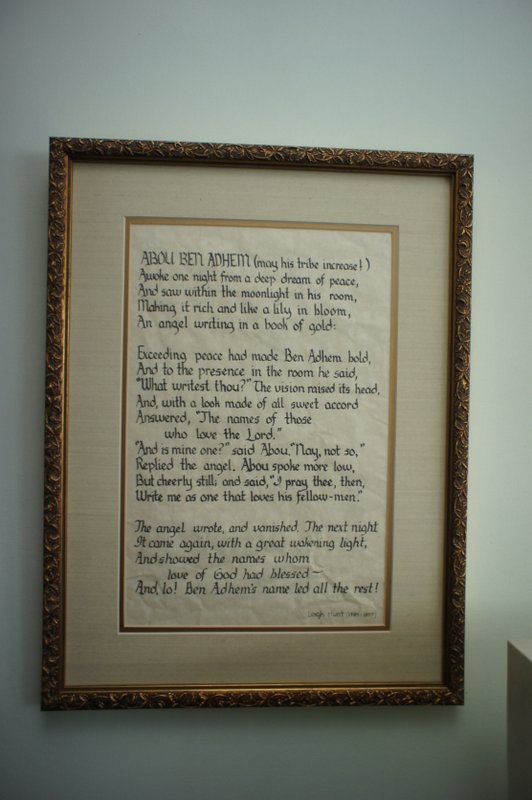 ABOU BEN ADHEM (may his tribe increase!)
Awoke one night from a deep dream of peace,
And saw within the moonlight in his room,
Making it rich and like a lily in bloom,
An angel writing in a book of gold:
Exceeding peace had made Ben Adhem bold,
And to the presence in the room he said,
"What writest thou?" The vision raised its head,
And, with a look made of all sweet accord
Answered, "The names of those
who love the Lord."
"And is mine one?" said Abou. "Nay, not so,"
Replied the angel. Abou spoke more low,
But cheerly still; and said, "I pray thee, then,
Write me as one that loves his fellow-men."
The angel wrote, and vanished. The next night
It came again, with a great wakening light,
And showed the names whom
love of God had blessed—
And, lo! Ben Adhem's name led all the rest!
Leigh Hunt